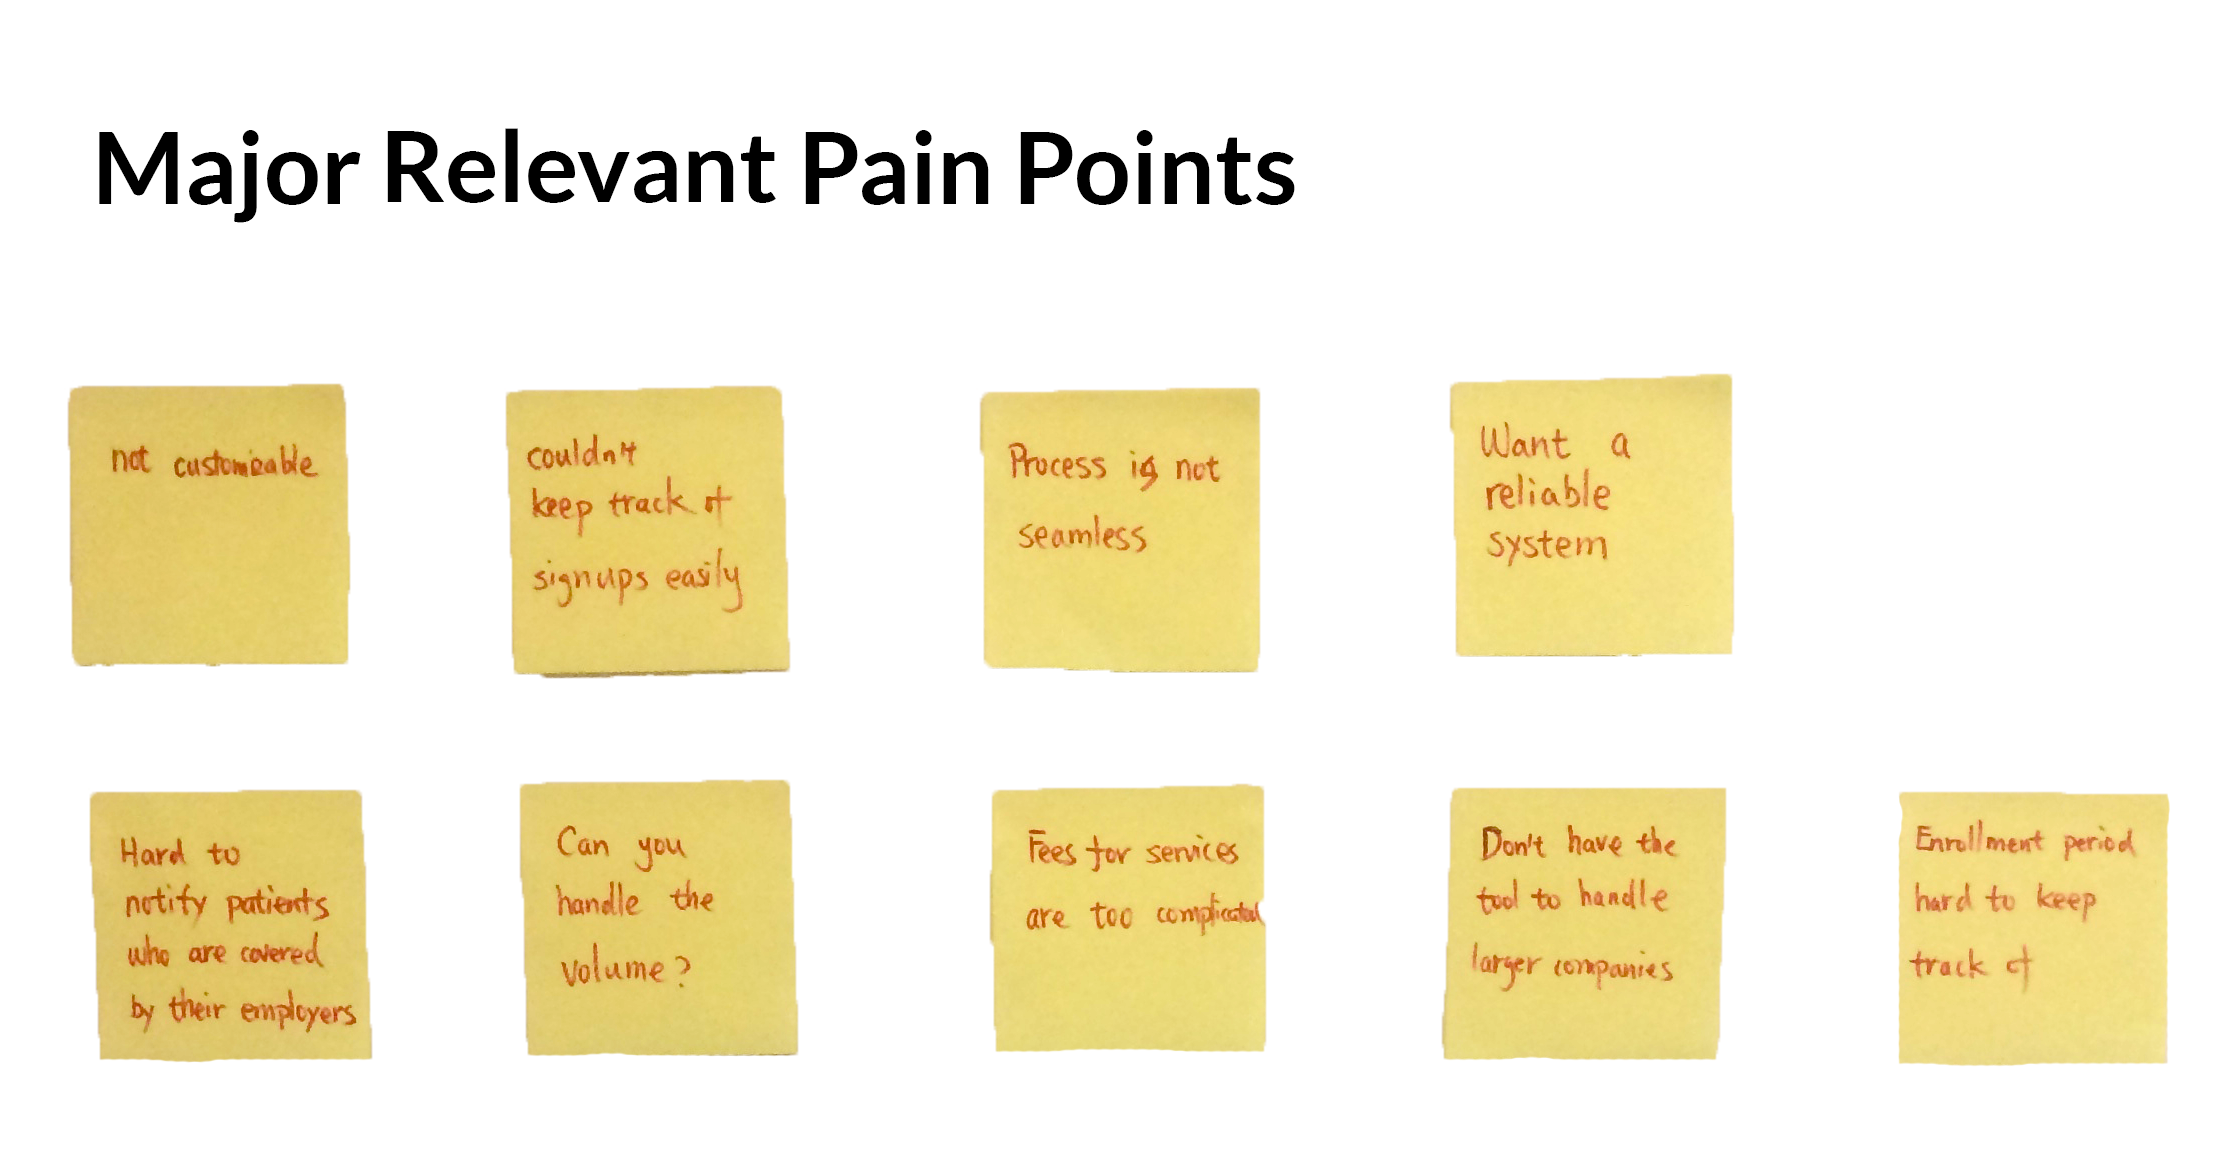 Major Relevant Pain Points
not customizable
couldn't
keep track of
signups easily
Process is not
seamless
Want a
reliable
system
Hard to
notify patients
who are covered
by their employers
Can you
handle the
volume?
Fees for services
are too complicated
Don't have the
tool to handle
larger companies
Enrollment period
hard to keep
track of